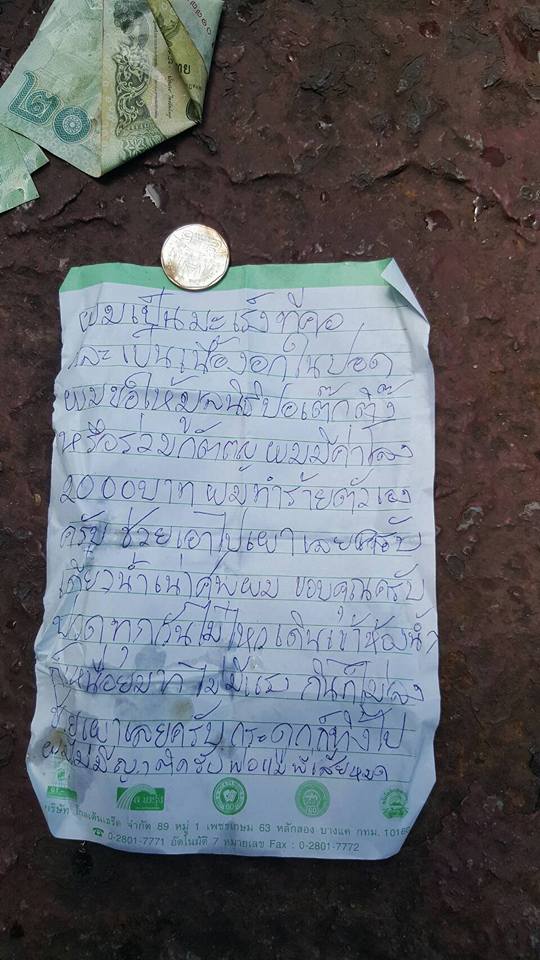 ๒๐
ไทย
ผมเป็นมะเร็งที่คอ
และเป็นเนื้องอกในปอด
ผมขอให้มูลนิธิปอเต๊กตึ๊ง
หรือร่วมกตัญญู ผมมีค่าโลง
2000บาท ผมทำร้ายตัวเอง
ครับ ช่วยเอาไปเผาเลยครับ
เดียวน้ำเน่าศพผม ขอบคุณครับ
ปวดทุกวันไม่ไหวเดินเข้าห้องน้ำ
ก็เหนื่อยมากไม่มีแรง กินก็ไม่ลง
ช่วยเผาเลยครับ กระดูกก็ทิ้งไป
ผมไม่มีญาติครับ พ่อแม่พี่เสียหมด
จำกัด 89 หมู่ 1 เพชรเกษม 63 หลักสอง บางแค กทม. 10160
☎ 0-2801-7771 อัตโนมัติ 7 หมายเลข Fax : 0-2801-7772